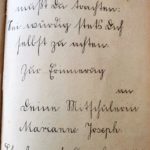 mußt Du trachten:
Sei würdig stets Dich
selbst zu achten.
Zur Erinnerung
an
Deine Mitschülerin
Marianne Joseph.